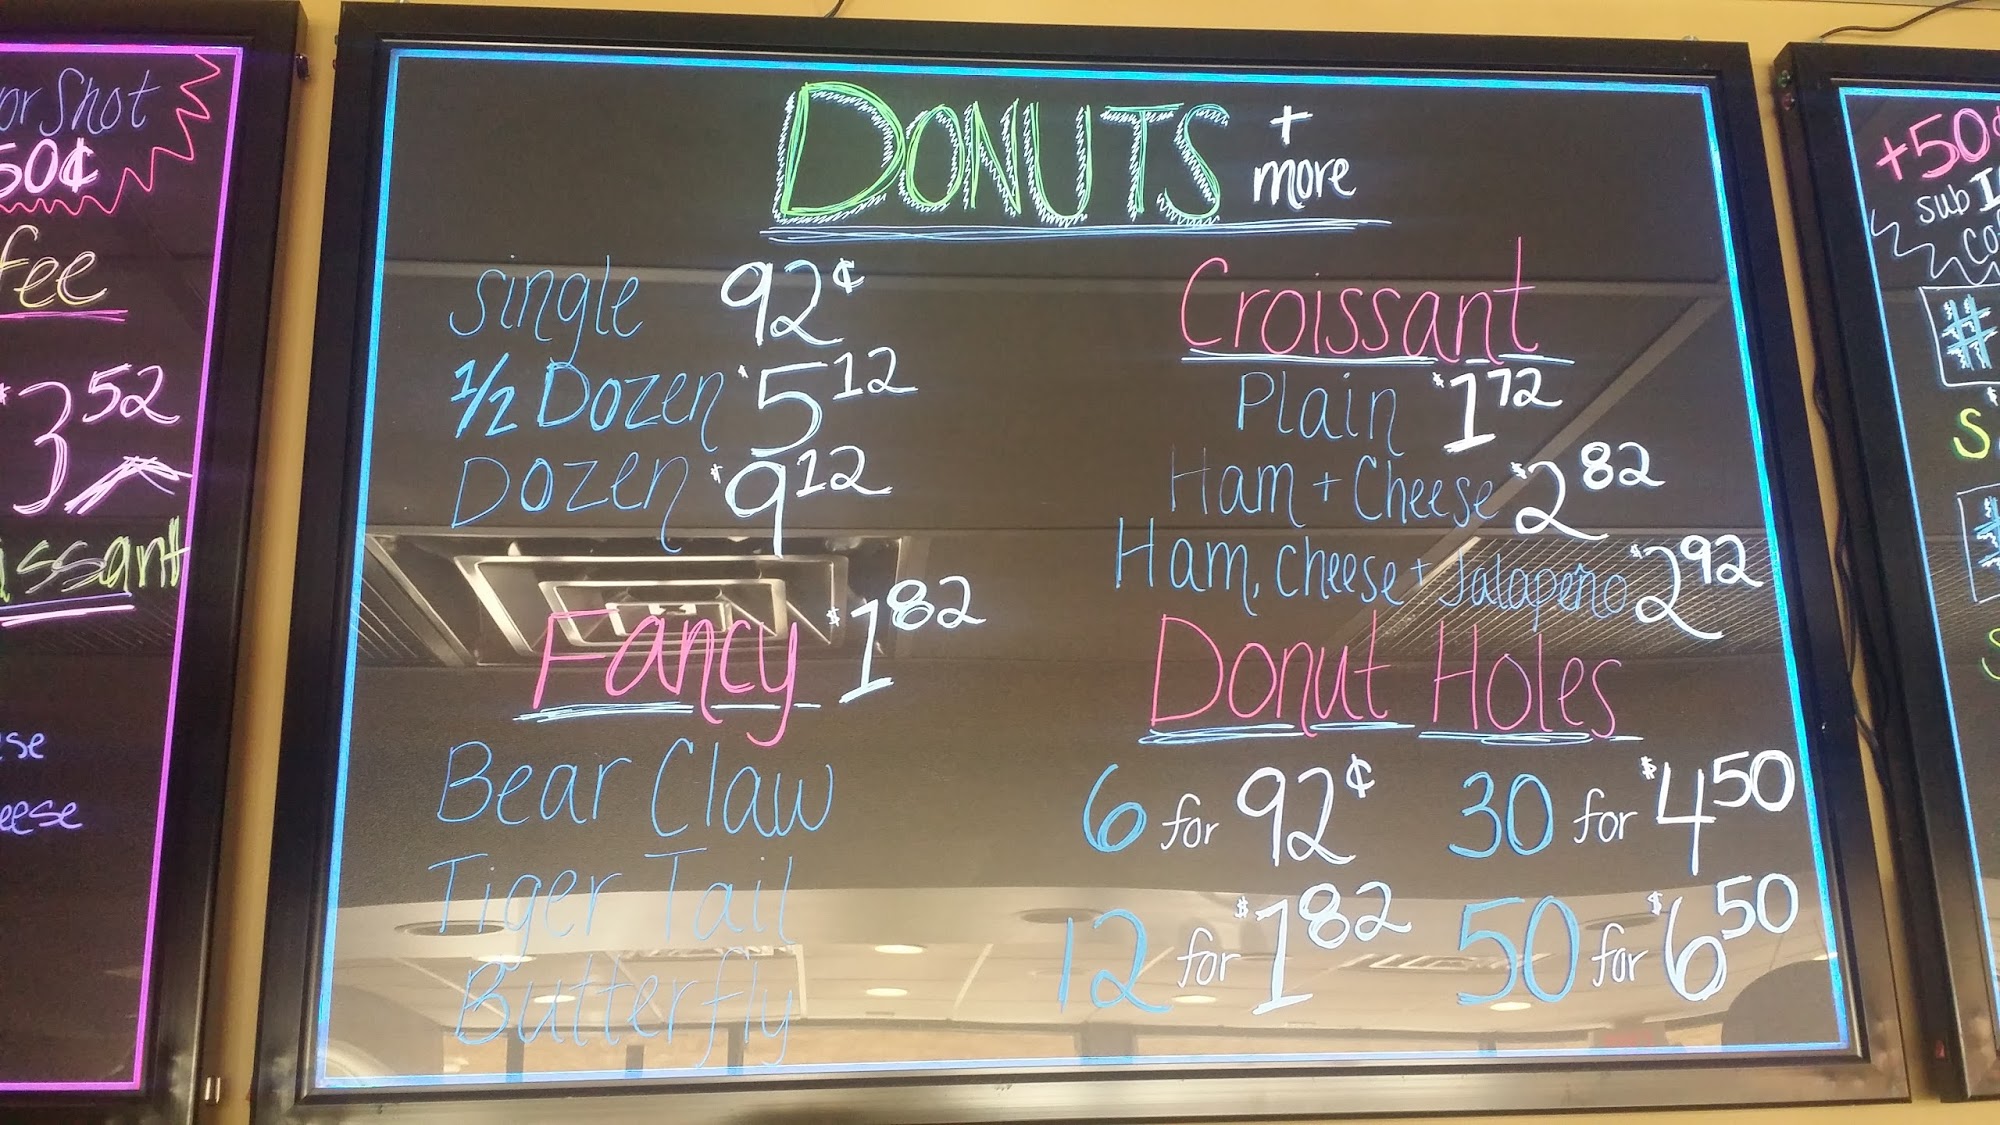 Shot
50¢
$3 52
DONUTS + more
Single 92¢
1/2 Dozen $5 12
Dozen $9 12
Fancy $1 82
Bear Claw
Tiger Tail
Butterfly
Croissant
Plain $1 72
Ham + Cheese $2 82
Ham, Cheese + Jalapeño $2 92
Donut Holes
6 for 92¢ 30 for $4 50
12 for $1 82 50 for $6 50
+50¢
sub
#